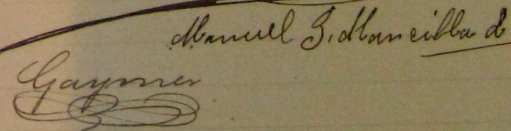 Manuel J. Mancilla d
Gaymer